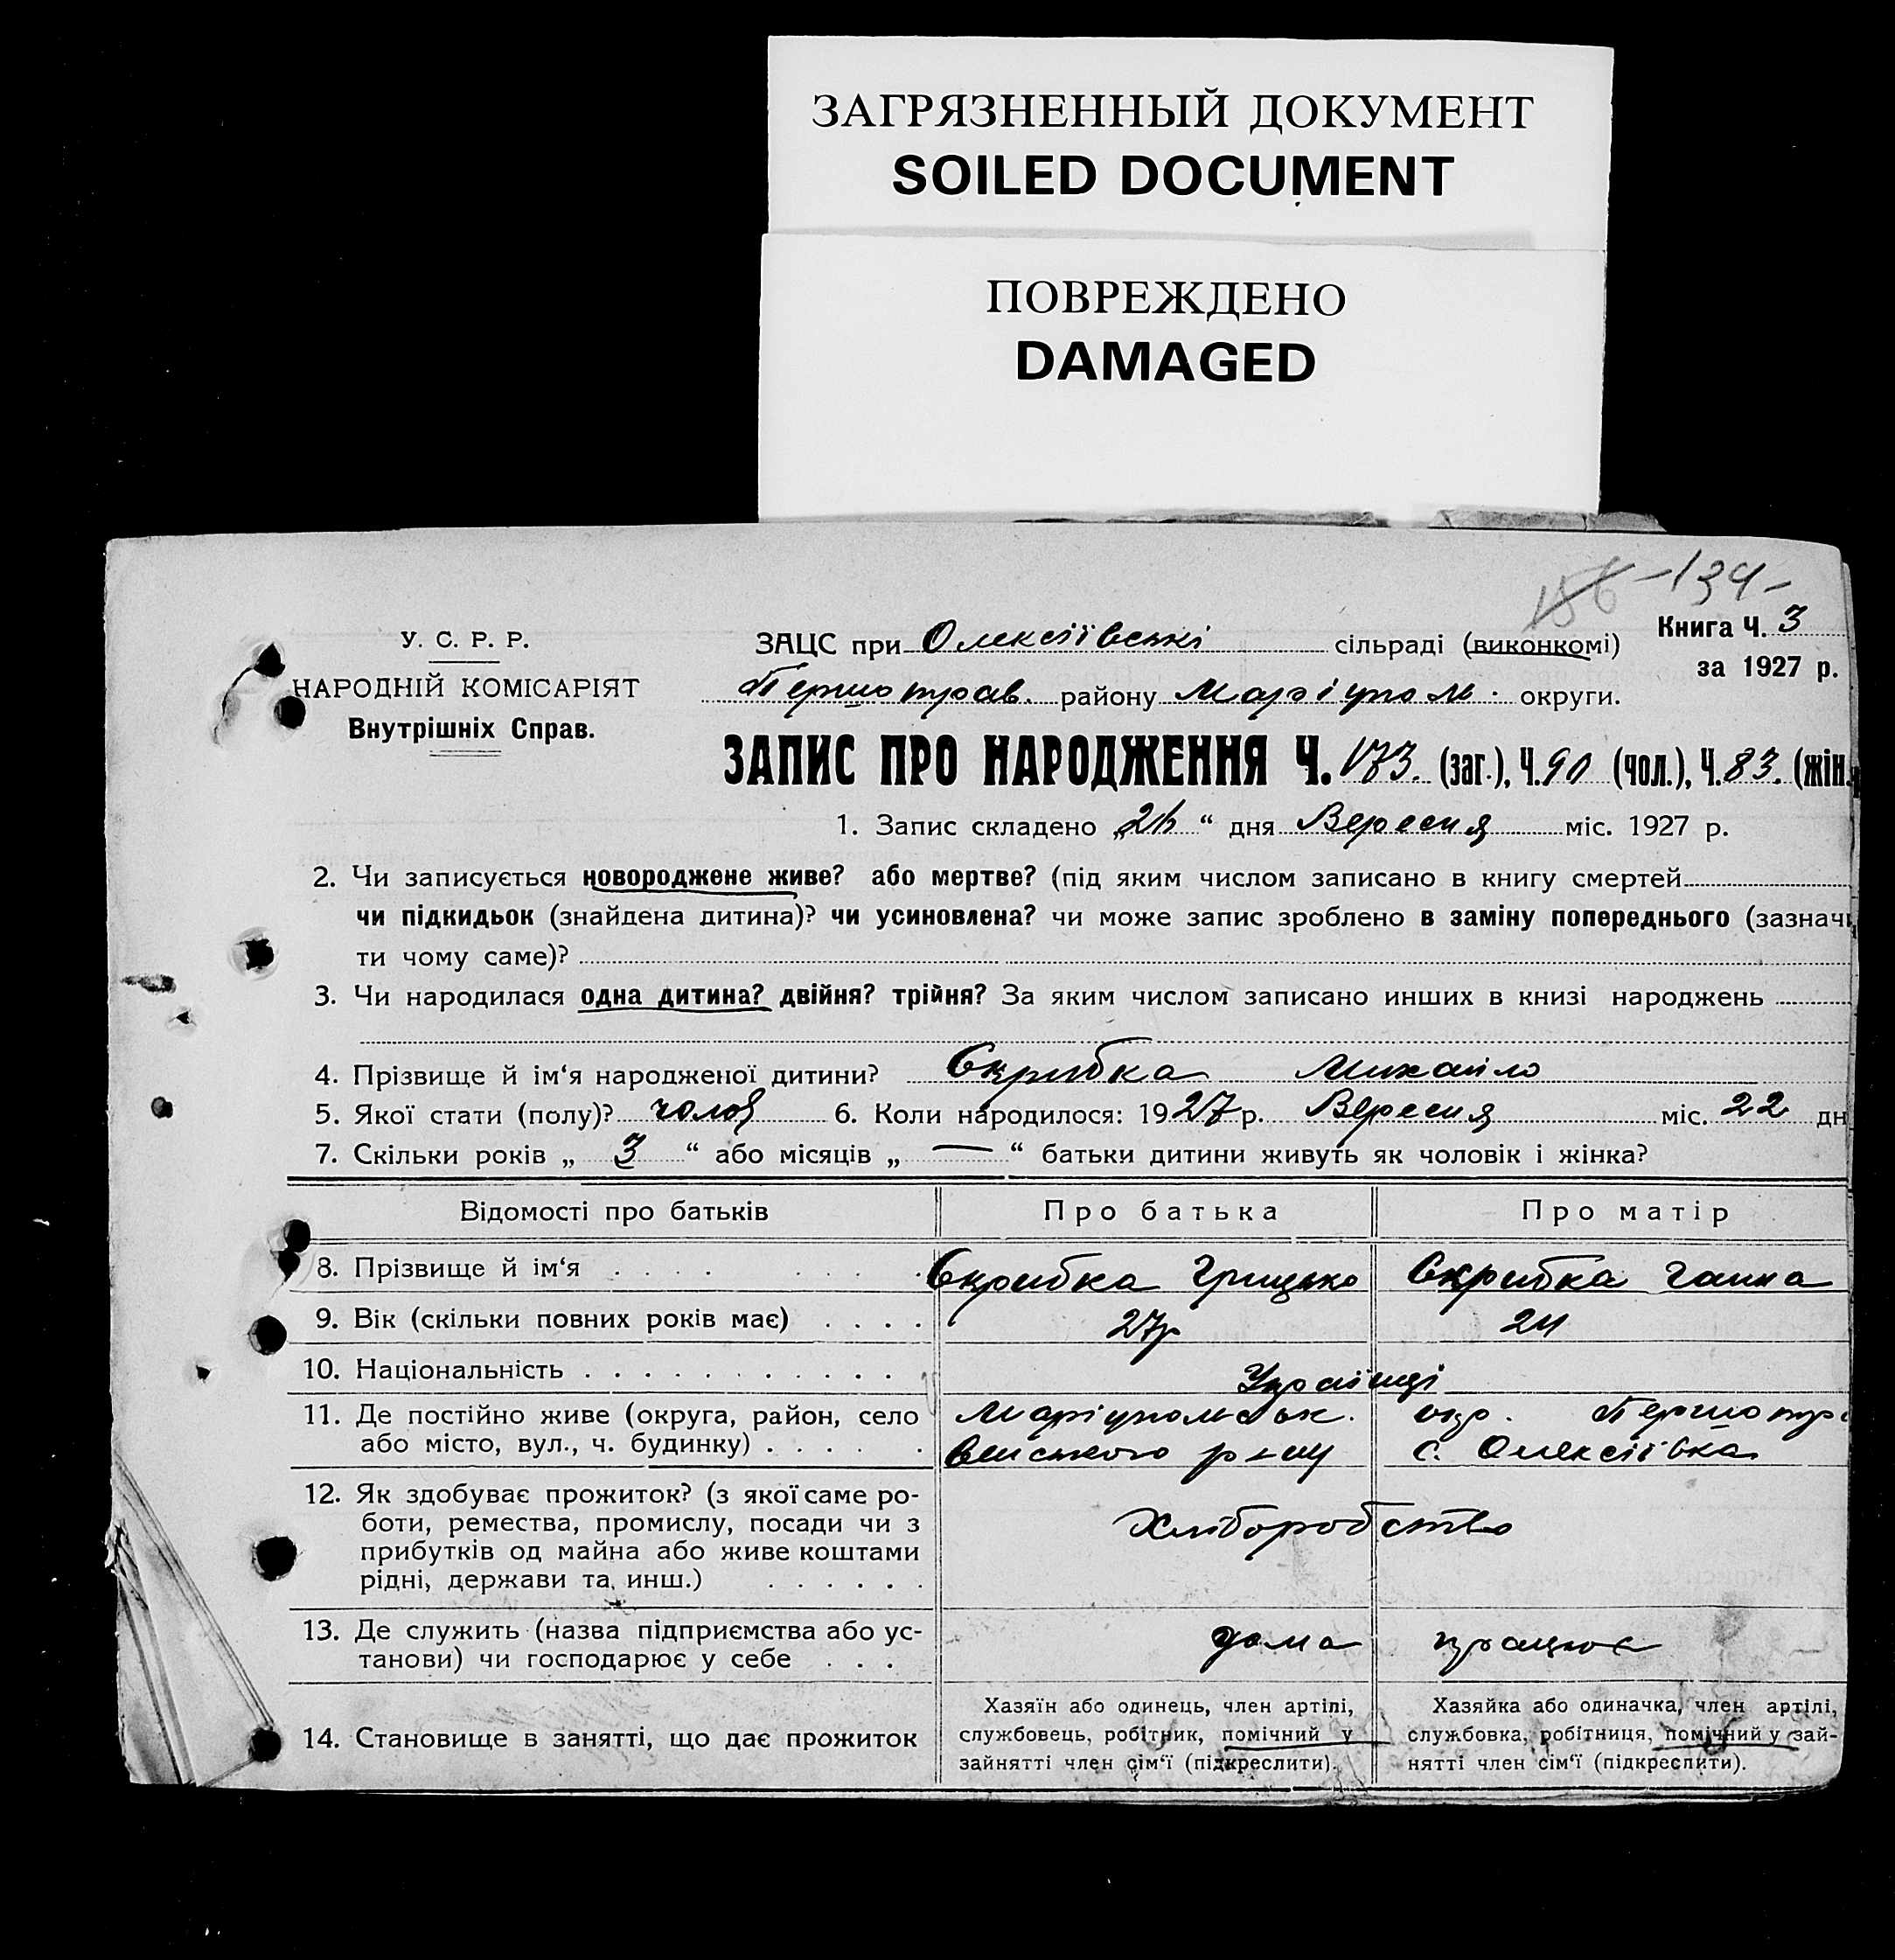 ЗАГРЯЗНЕННЫЙ ДОКУМЕНТ
SOILED DOCUMENT
ПОВРЕЖДЕНО
DAMAGED
156 -134-
У. С. Р. Р.
НАРОДНІЙ КОМІСАРІЯТ
Внутрішніх Справ.
ЗАЦС при Олексіївські сільраді (виконкомі)
Книга Ч. 3
за 1927 р.
Першотрав. району Маріупол. округи.
ЗАПИС ПРО НАРОДЖЕННЯ Ч. 173. (заг.), Ч. 90 (чол.), Ч. 83. (жін.
1. Запис складено „ “ дня Вересня міс. 1927 р.
2. Чи записується новороджене живе? або мертве? (під яким числом записано в книгу смертей
чи підкидьок (знайдена дитина)? чи усиновлена? чи може запис зроблено в заміну попереднього (зазначи
ти чому саме)?
3. Чи народилася одна дитина? двійня? трійня? За яким числом записано инших в книзі народжень
4. Прізвище й ім‘я народженої дитини? Скрибка Михайло
5. Якої стати (полу)? чолов 6. Коли народилося: 1927 р. Вересня міс. 22 дн
7. Скільки років „ 3 “ або місяців „ — “ батьки дитини живуть як чоловік і жінка?
Відомості про батьків Про батька Про матір
8. Прізвище й ім‘я Скрибка Грицько Скрибка Ганна
9. Вік (скільки повних років має) 27р 24
10. Національність Українці
11. Де постійно живе (округа, район, село Маріупольськ. окр. Першотра
або місто, вул., ч. будинку) венського р-ну с. Олексіївка
12. Як здобуває прожиток? (з якої саме ро-
боти, ремества, промислу, посади чи з Хліборобство
прибутків од майна або живе коштами
рідні, держави та инш.)
13. Де служить (назва підприємства або ус- дома працює
танови) чи господарює у себе
14. Становище в занятті, що дає прожиток
Хазяїн або одинець, член артілі,
службовець, робітник, помічний у
зайнятті член сім‘ї (підкреслити).
Хазяйка або одиначка, член артілі,
службовка, робітниця, помічний у зай-
нятті член сім‘ї (підкреслити).